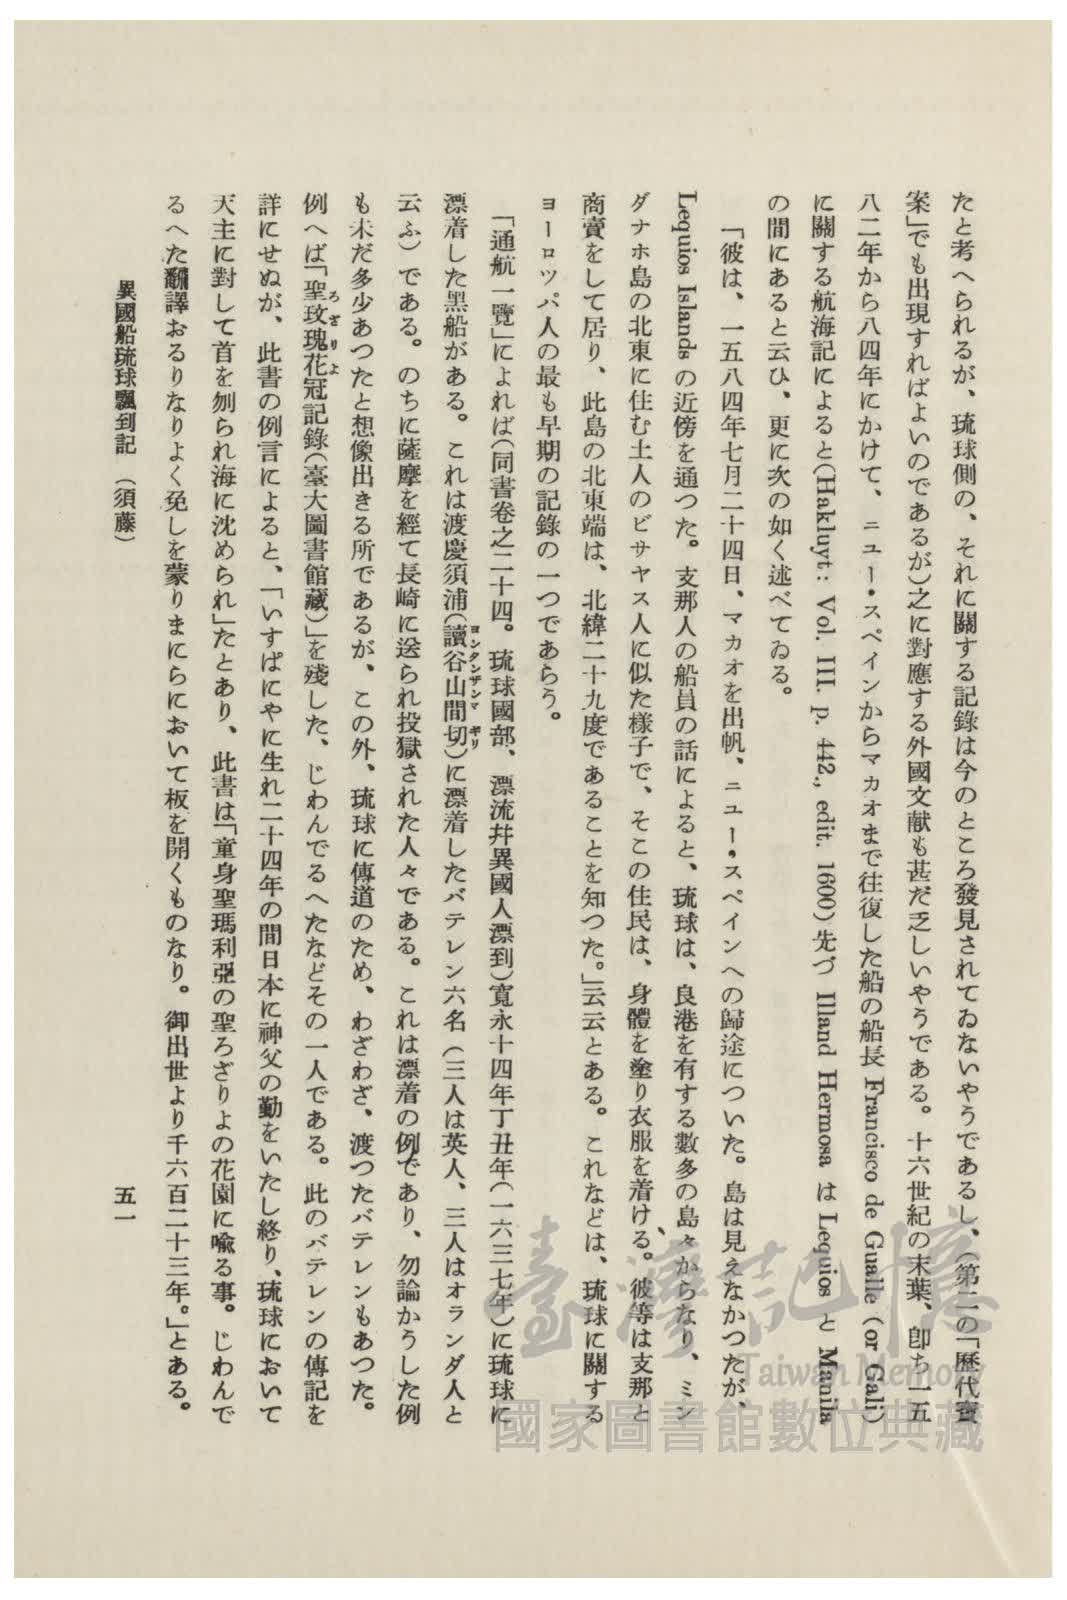 たと考へられるが、琉球側の、それに關する記錄は今のところ發見されてゐないやうであるし、(第二の「歷代寶
案」でも出現すればよいのであるが)之に對應する外國文献も甚だ乏しいやうである。十六世紀の末葉、卽ち一五
八二年から八四年にかけて、ニュー・スペインからマカオまで往復した船の船長 Francisco de Gualle (or Gali)
に關する航海記によると(Hakluyt: Vol. III. p. 442., edit. 1600)先づ Illand Hermosa は Lequios と Manila
の間にあると云ひ、更に次の如く述べてゐる。
「彼は、一五八四年七月二十四日、マカオを出帆、ニュー・スペインへの歸途についた。島は見えなかつたが、
Lequios Islands の近傍を通つた。支那人の船員の話によると、琉球は、良港を有する數多の島々からなり、ミン
ダナホ島の北東に住む土人のビサヤス人に似た樣子で、そこの住民は、身體を塗り衣服を着ける。彼等は支那と
商賣をして居り、此島の北東端は、北緯二十九度であることを知つた。」云云とある。これなどは、琉球に關する
ヨーロッパ人の最も早期の記錄の一つであらう。
「通航一覽」によれば(同書卷之二十四。琉球國部、漂流幷異國人漂到)寬永十四年丁丑年(一六三七年)に琉球に
漂着した黑船がある。これは渡慶須浦(讀谷山間切ヨンタンザンマギリ)に漂着したバテレン六名(三人は英人、三人はオランダ人と
云ふ)である。のちに薩摩を經て長崎に送られ投獄された人々である。これは漂着の例であり、勿論かうした例
も未だ多少あつたと想像出きる所であるが、この外、琉球に傳道のため、わざわざ、渡つたバテレンもあつた。
例へば「聖玫瑰花冠ろざりよ記錄(臺大圖書館藏)」を殘した、じわんでるへたなどその一人である。此のバテレンの傳記を
詳にせぬが、此書の例言によると、「いすぱにやに生れ二十四年の間日本に神父の勤をいたし終り、琉球において
天主に對して首を刎られ海に沈められ」たとあり、此書は「童身聖瑪利亞の聖ろざりよの花園に喩る事。じわんで
るへた翻譯おるりなりよく免しを蒙りまにらにおいて板を開くものなり。御出世より千六百二十三年。」とある。
異國船琉球飄到記 (須藤)
五一
臺灣記憶
Taiwan Memory
國家圖書館數位典藏